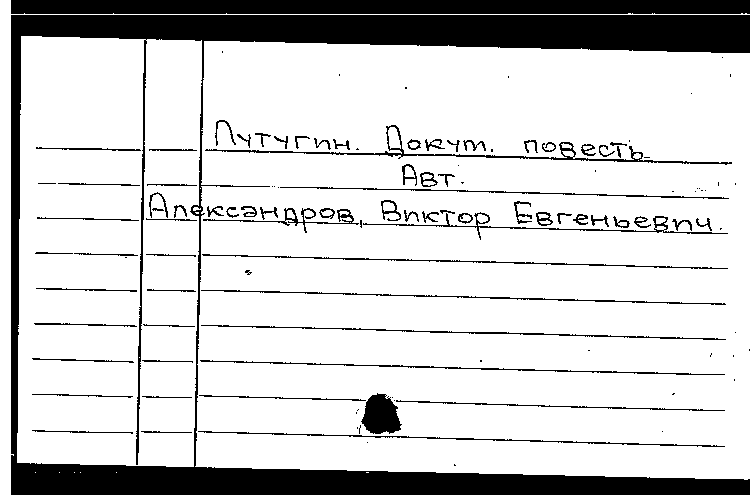 Лутугин. Докум. повесть
Авт.
Александров, Виктор Евгеньевич.